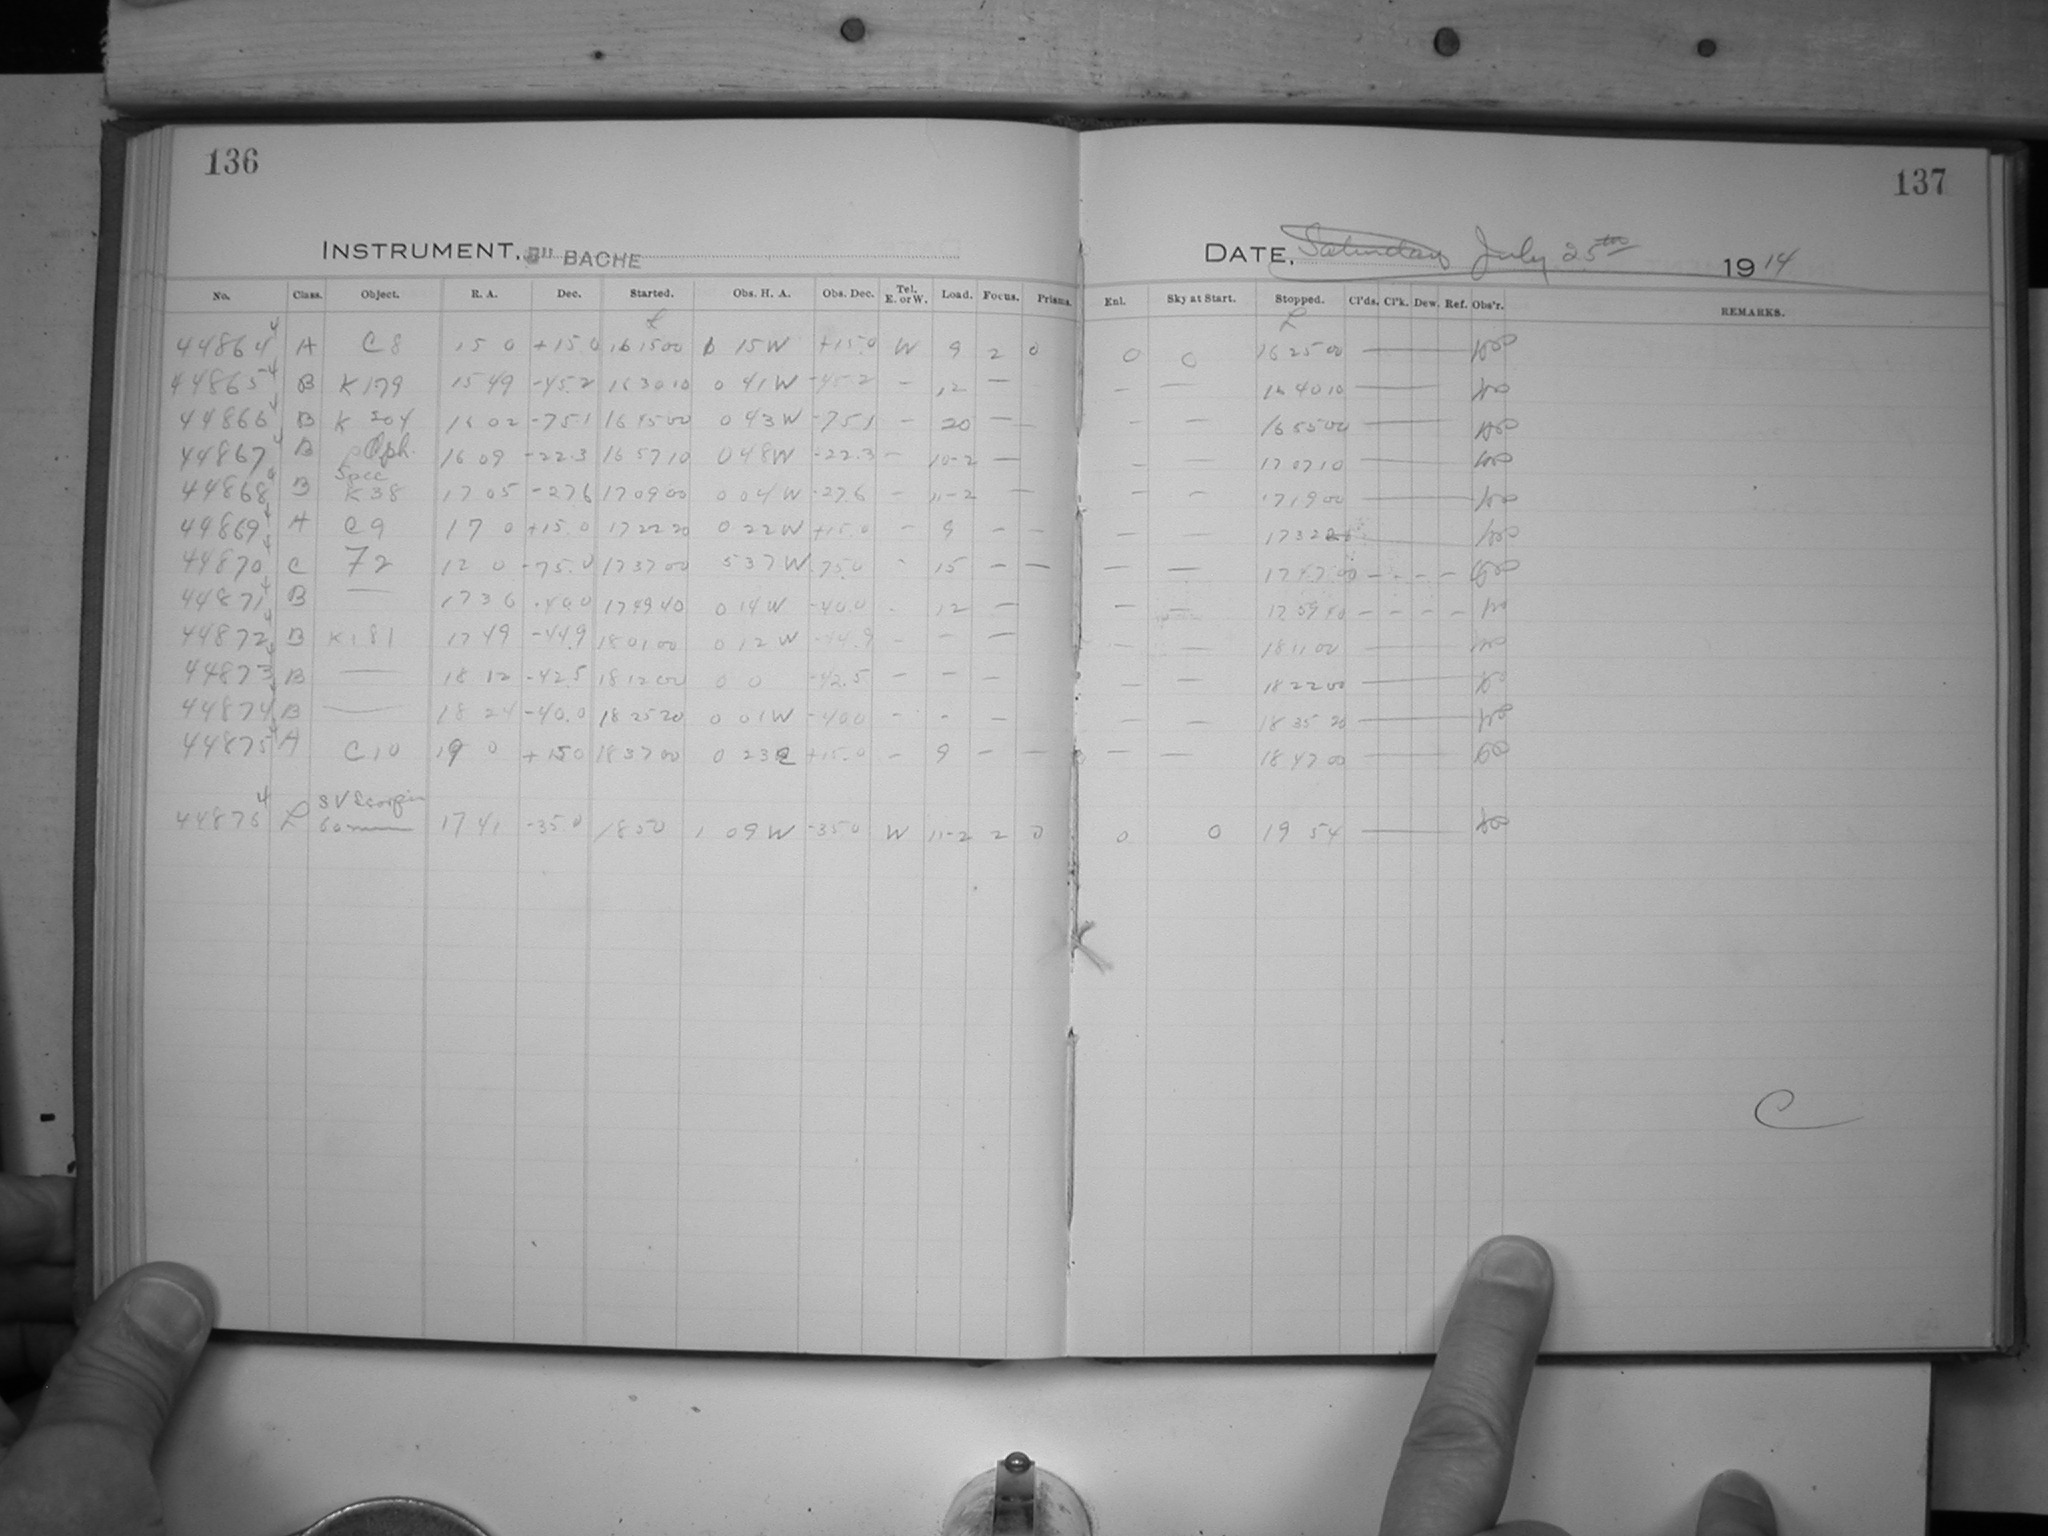 136
137
INSTRUMENT, 8" BACHE
DATE, Saturday July 25th 1914
No. Class. Object. R. A. Dec. Started. Obs. H. A. Obs. Dec. Tel. E. or W. Load. Focus. Prisms. Enl. Sky at Start. Stopped. Cl'ds. Cl'k. Dew. Ref. Obs'r. REMARKS.
44864 A C8 15 0 +15.0 16 15 00 15 W +15.0 W 9 2 0 0 0 16 25 00
44865 B K 179 15 49 -45.2 16 30 10 0 41 W -45.2 - 12 — — — 16 40 10
44866 B K 204 16 02 -75.1 16 45 00 0 43 W -75.1 - 20 — — — — 16 55 00
44867 B ρ Oph. 16 09 -22.3 16 57 10 0 48 W -22.3 - 10-2 — — 17 07 10
44868 B Spec K 38 17 05 -27.6 17 09 00 0 04 W -27.6 - 11-2 — — — 17 19 00
44869 A C9 17 0 +15.0 17 22 20 0 22 W +15.0 - 9 — — — — 17 32
44870 C 72 12 0 -75.0 17 37 00 5 37 W 75.0 - 15 — — — — 17 47 00 - - - -
44871 B — 17 36 -40.0 17 49 40 0 14 W -40.0 - 12 — — — 17 59 40 - - - -
44872 B K 181 17 49 -44.9 18 01 00 0 12 W -44.9 - - — — — 18 11 00
44873 B — 18 12 -42.5 18 12 00 0 0 -42.5 - - - — — 18 22 00
44874 B — 18 24 -40.0 18 25 20 0 01 W -40.0 - - — — — 18 35 20
44875 A C10 19 0 +15.0 18 37 00 0 23 E +15.0 - 9 — — — — 18 47 00
44876 L SV Scorpii 60 mm 17 41 -35.0 18 50 1 09 W -35.0 W 11-2 2 0 0 0 19 54
C